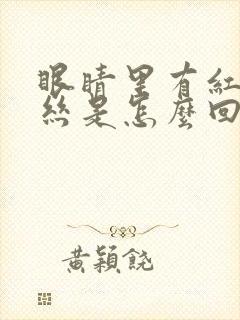 眼睛里有紅
絲是怎麼回
黃穎饒